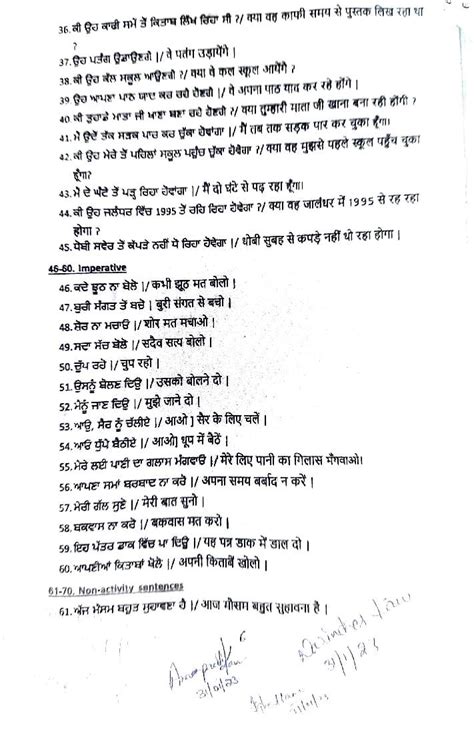 36. ਕੀ ਉਹ ਕਾਫੀ ਸਮੇਂ ਤੋਂ ਕਿਤਾਬ ਲਿਖ ਰਿਹਾ ਸੀ ?/ क्या वह काफी समय से पुस्तक लिख रहा था
?
37. ਉਹ ਪਤੰਗ ਉਡਾਉਣਗੇ |/ वे पतंग उड़ायेंगे |
38. ਕੀ ਉਹ ਕੱਲ ਸਕੂਲ ਆਉਣਗੇ ?/ क्या वे कल स्कूल आयेंगे ?
39 ਉਹ ਆਪਣਾ ਪਾਠ ਯਾਦ ਕਰ ਰਹੇ ਹੋਣਗੇ |/ वे अपना पाठ याद कर रहे होंगे |
40 ਕੀ ਤੁਹਾਡੇ ਮਾਤਾ ਜੀ ਖਾਣਾ ਬਣਾ ਰਹੇ ਹੋਣਗੇ ?/ क्या तुम्हारी माता जी खाना बना रही होंगी ?
41. ਮੈਂ ਉਦੋਂ ਤੱਕ ਸੜਕ ਪਾਰ ਕਰ ਚੁੱਕਾ ਹੋਵਾਂਗਾ |/ मैं तब तक सड़क पार कर चुका हूँगा।
42. ਕੀ ਉਹ ਮੇਰੇ ਤੋਂ ਪਹਿਲਾਂ ਸਕੂਲ ਪਹੁੰਚ ਚੁੱਕਾ ਹੋਵੇਗਾ ?/ क्या वह मुझसे पहले स्कूल पहुँच चुका
हूँगा?
43. ਮੈਂ ਦੋ ਘੰਟੇ ਤੋਂ ਪੜ੍ਹ ਰਿਹਾ ਹੋਵਾਂਗਾ |/ मैं दो घंटे से पढ़ रहा हूँगा।
44. ਕੀ ਉਹ ਜਲੰਧਰ ਵਿੱਚ 1995 ਤੋਂ ਰਹਿ ਰਿਹਾ ਹੋਵੇਗਾ ?/ क्या वह जालंधर में 1995 से रह रहा
होगा ?
45. ਧੋਬੀ ਸਵੇਰ ਤੋਂ ਕੱਪੜੇ ਨਹੀਂ ਧੋ ਰਿਹਾ ਹੋਵੇਗਾ |/ धोबी सुबह से कपड़े नहीं धो रहा होगा |
46-60. Imperative
46. ਕਦੇ ਝੂਠ ਨਾ ਬੋਲੋ |/ कभी झूठ मत बोलो |
47. ਬੁਰੀ ਸੰਗਤ ਤੋਂ ਬਚੋ | बुरी संगत से बचो |
48. ਸ਼ੋਰ ਨਾ ਮਚਾਓ |/ शोर मत मचाओ |
49. ਸਦਾ ਸੱਚ ਬੋਲੋ |/ सदैव सत्य बोलो |
50. ਚੁੱਪ ਰਹੋ |/ चुप रहो |
51. ਉਸਨੂੰ ਬੋਲਣ ਦਿਉ |/ उसको बोलने दो |
52. ਮੈਨੂੰ ਜਾਣ ਦਿਉ |/ मुझे जाने दो |
53. ਆਉ, ਸੈਰ ਨੂੰ ਚੱਲੀਏ |/ आओ] सैर के लिए चलें |
54. ਆਓ ਧੁੱਪੇ ਬੈਠੀਏ |/ आओ] धूप में बैठें |
55. ਮੇਰੇ ਲਈ ਪਾਣੀ ਦਾ ਗਲਾਸ ਮੰਗਵਾਓ |/ मेरे लिए पानी का गिलास मँगवाओ।
56. ਆਪਣਾ ਸਮਾਂ ਬਰਬਾਦ ਨਾ ਕਰੋ |/ अपना समय बर्बाद न करें |
57. ਮੇਰੀ ਗੱਲ ਸੁਣੋ |/ मेरी बात सुनो |
58. ਬਕਵਾਸ ਨਾ ਕਰੋ |/ बकवास मत करो |
59. ਇਹ ਪੱਤਰ ਡਾਕ ਵਿੱਚ ਪਾ ਦਿਉ |/ यह पत्र डाक में डाल दो |
60. ਆਪਣੀਆਂ ਕਿਤਾਬਾਂ ਖੋਲੋ |/ अपनी किताबें खोलो |
61-70. Non-activity sentences
61. ਅੱਜ ਮੌਸਮ ਬਹੁਤ ਸੁਹਾਵਣਾ ਹੈ |/ आज मौसम बहुत सुहावना है |
31/01/23
31/1/23